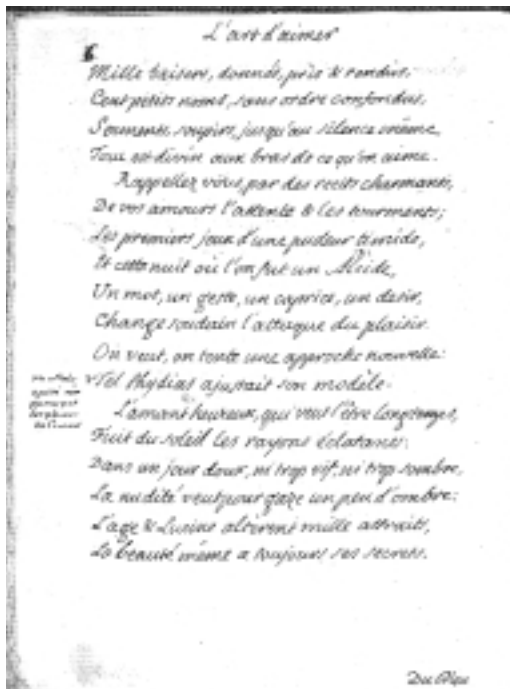 L'art d'aimer
6
Mille baisers, donnés, pris & rendus,
Cent petits noms, sans ordre confondus,
Serments, soupirs, jusqu'au silence même,
Tout est divin aux bras de ce qu'on aime.
Rappellez vous, par des recits charmants,
De vos amours l'attente & les tourments;
Les premiers jeux d'une pudeur timide,
Et cette nuit où l'on fut un Alcide,
Un mot, un geste, un caprice, un desir,
Change soudain l'attaque du plaisir.
On veut, on tente une approche nouvelle:
Tel Phydias ajustait son modèle.
L'amant heureux, qui veut l'être longtemps,
Fuit du soleil les rayons éclatans:
Dans un jour doux, ni trop vif, ni trop sombre,
La nudité veut pour gaze un peu d'ombre:
L'age & Lucine alterent mille attraits,
La beauté même a toujours ses secrets.